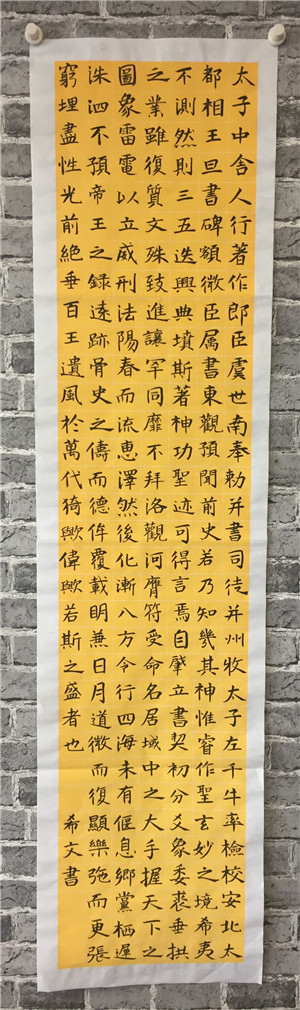 太子中舍人行著作郎臣虞世南奉勅并書司徒并州牧太子左千牛率檢校安北太
都相王旦書碑額微臣属書東觀預聞前史若乃知幾其神惟睿作聖玄妙之境希夷
不測然則三五迭興典墳斯著神功聖迹可得言焉自肇立書契初分爻象委裘垂拱
之業雖復質文殊致進讓罕同靡不拜洛觀河膺符受命名居域中之大手握天下之
圖象雷電以立威刑法陽春而流惠澤然後化漸八方令行四海未有偃息鄉黨栖遲
洙泗不預帝王之錄遠跡胥史之儔而德侔覆載明兼日月道微而復顯樂弛而更張
窮理盡性光前絕垂百王遺風於萬代猗歟偉歟若斯之盛者也
希文書